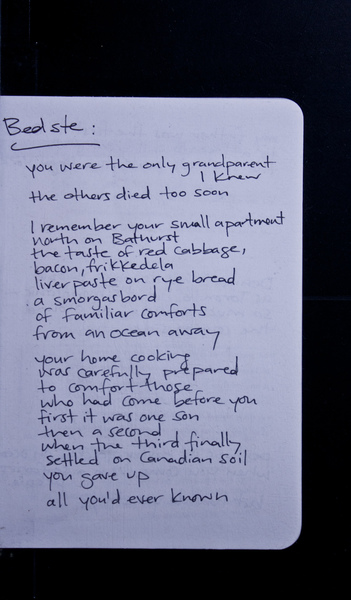 Bedste:
you were the only grandparent
I knew
the others died too soon
I remember your small apartment
north on Bathurst
the taste of red cabbage,
bacon, frikkedela
liverpaste on rye bread
a smorgasbord
of familiar comforts
from an ocean away
your home cooking
was carefully prepared
to comfort those
who had come before you
first it was one son
then a second
when the third finally
settled on Canadian soil
you gave up
all you'd ever known